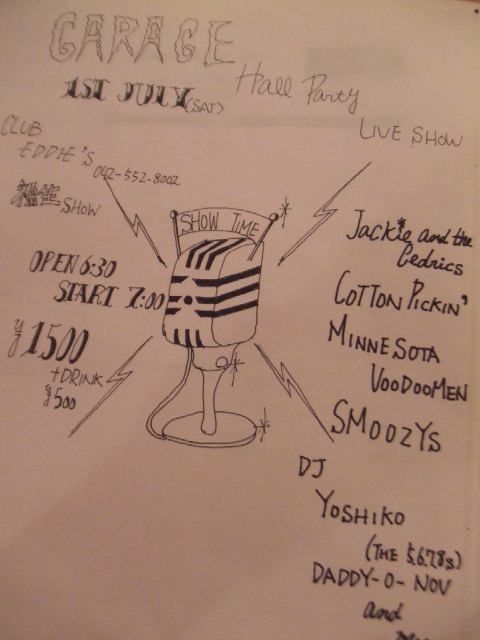 GARAGE
Hall Party
1ST JULY (SAT)
LIVE SHOW
CLUB
EDDIE'S
042-552-8002
福生 SHOW
SHOW TIME
OPEN 6:30
START 7:00
¥1500
+DRINK
¥500
Jackie and the
Cedrics
COTTON PICKIN'
MINNESOTA
VOODOOMEN
SMOOZYS
DJ
YOSHIKO
(THE 5.6.7.8s)
DADDY-O-NOV
and